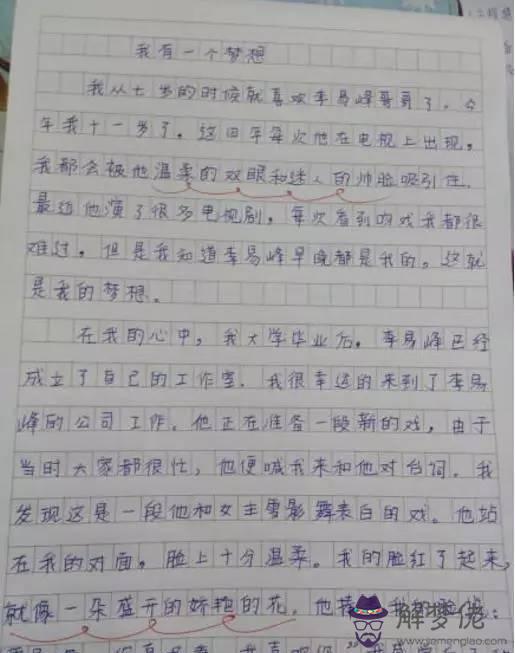 我有一个梦想
我从七岁的时候就喜欢李易峰哥哥了，今
年我十一岁了。这四年每次他在电视上出现，
我都会被他温柔的双眼和迷人的帅脸吸引住。
最近他演了很多电视剧，每次看到吻戏我都很
难过，但是我知道李易峰早晚都是我的。这就
是我的梦想。
在我的心中，我大学毕业后，李易峰已经
成立了自己的工作室，我很幸运的来到了李易
峰的公司工作。他正在准备一段新的戏，由于
当时大家都很忙，他便喊我来和他对台词。我
发现这是一段他和女主雪影舞表白的戏。他站
在我的对面，脸上十分温柔。我的脸红了起来，
就像一朵盛开的娇艳的花。他
解梦佬
www.jiemenglao.com